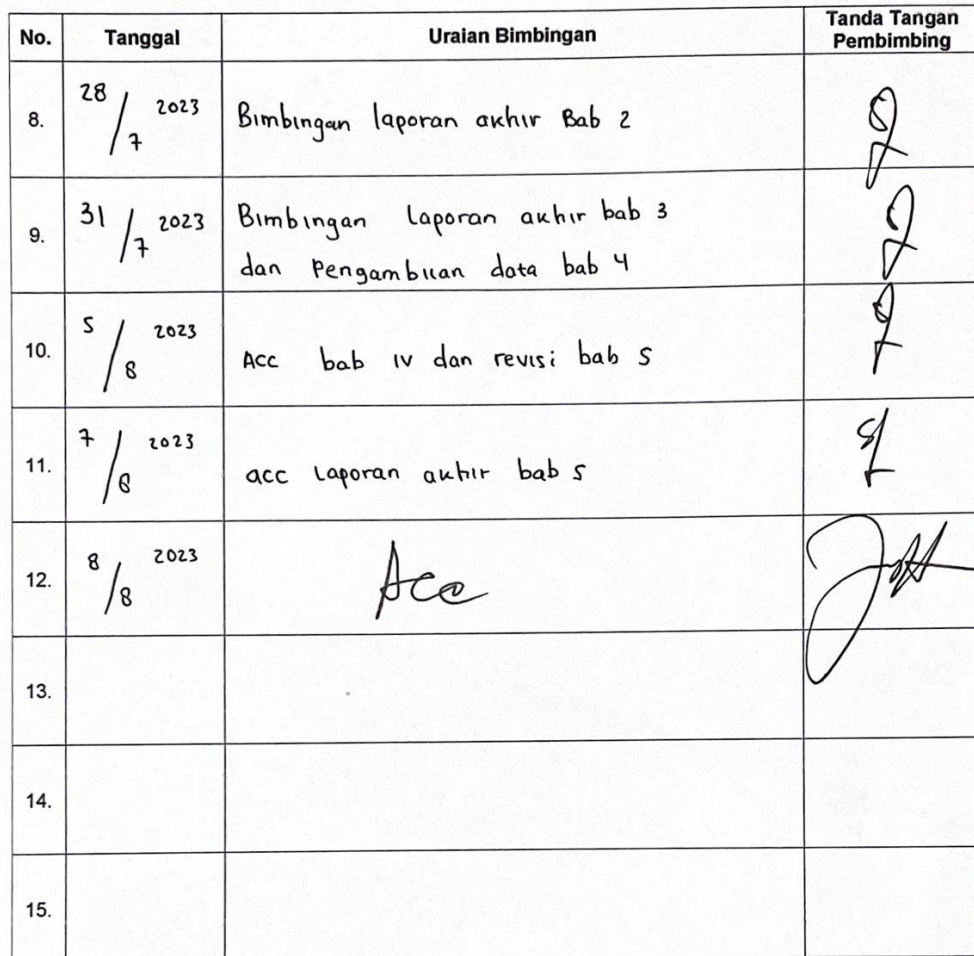 No. Tanggal Uraian Bimbingan Tanda Tangan Pembimbing
8. 28/7 2023 Bimbingan laporan akhir Bab 2
9. 31/7 2023 Bimbingan laporan akhir bab 3
dan Pengambilan data bab 4
10. 5/8 2023 Acc bab IV dan revisi bab 5
11. 7/8 2023 acc laporan akhir bab 5
12. 8/8 2023 Acc
13.
14.
15.